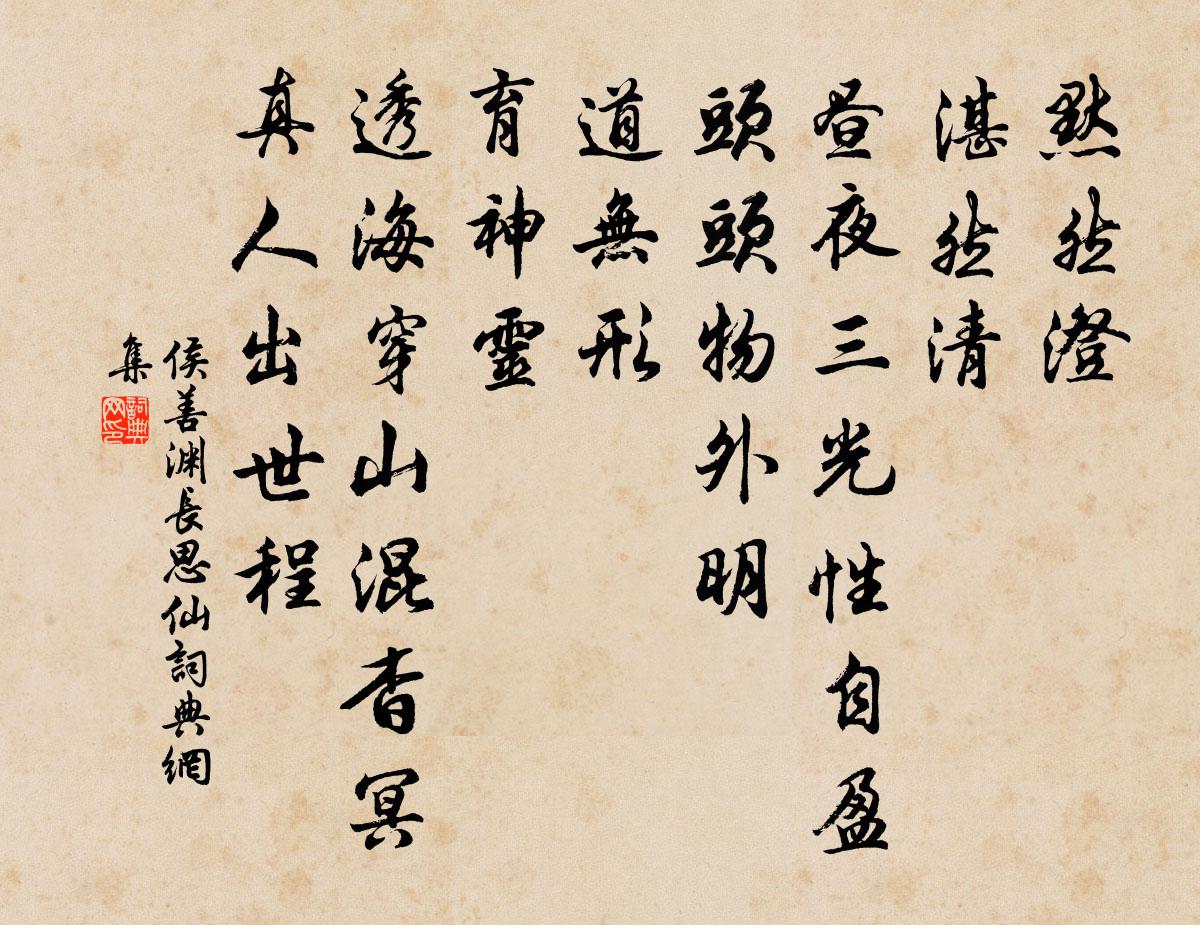 默然澄
湛然清
昼夜三光性自盈
頭頭物外明
道無形
育神靈
透海穿山混杳冥
真人出世程
侯善渊長思仙詞典網
集
詞典
网印